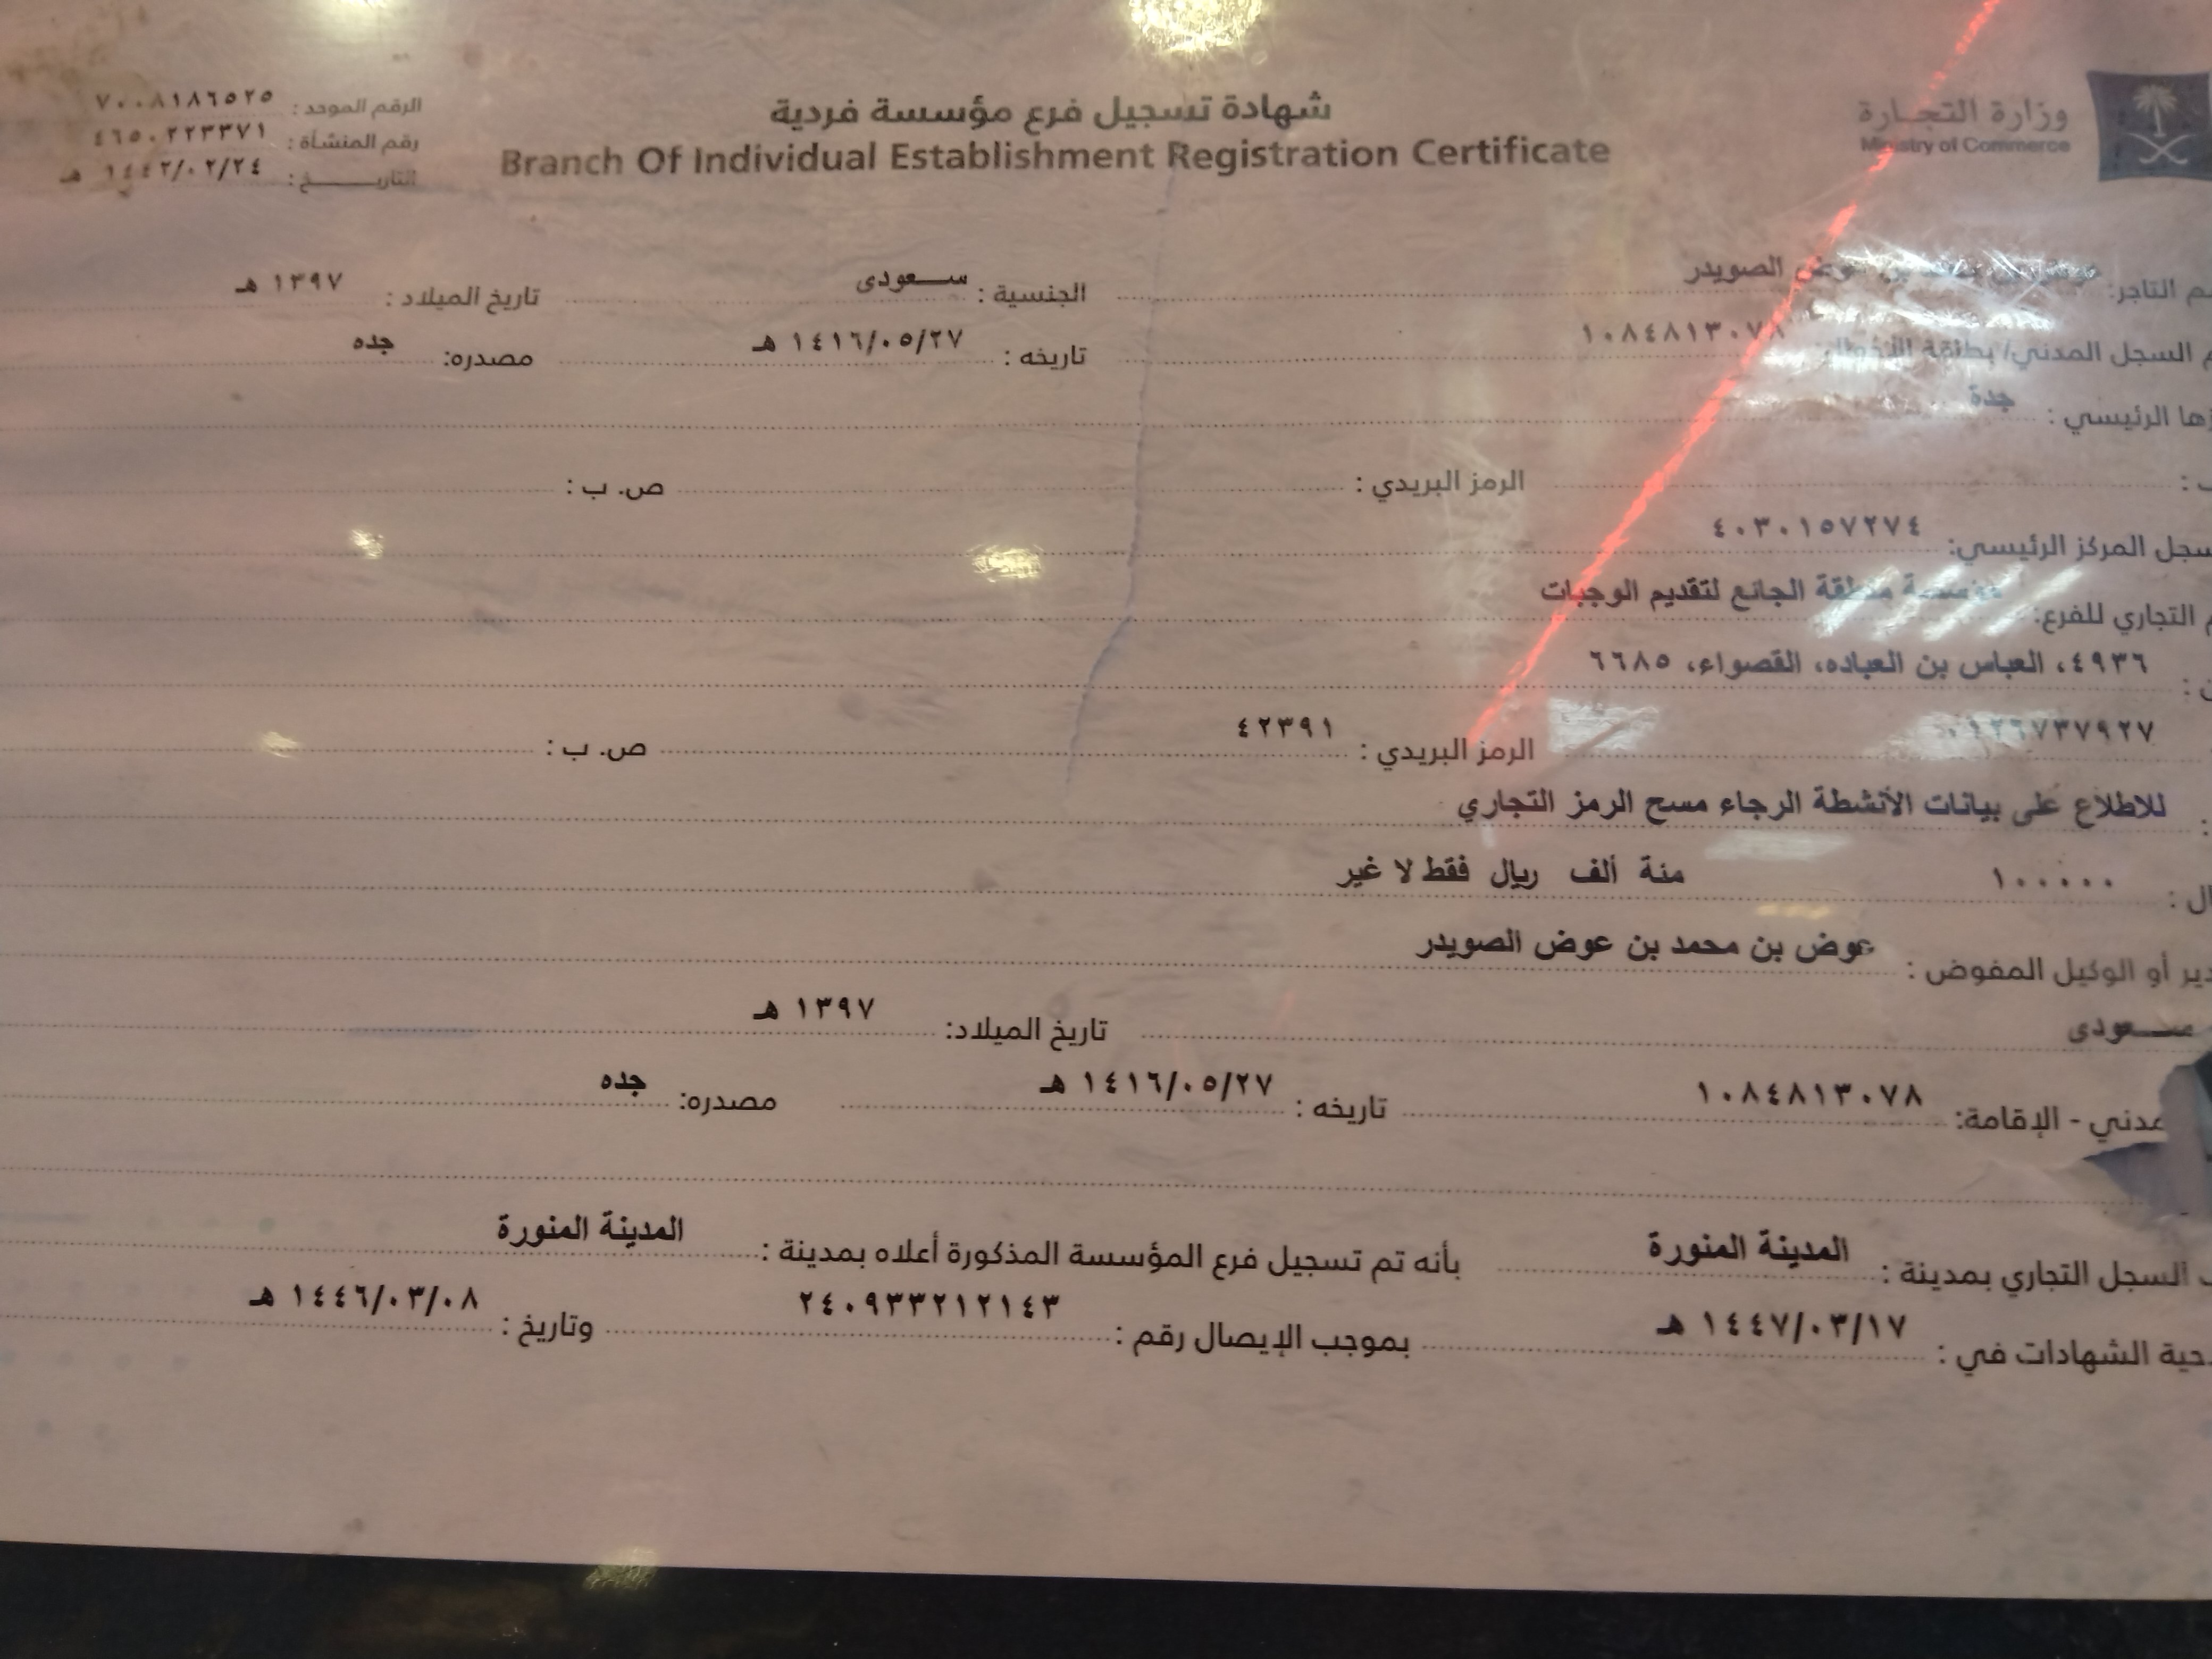 وزارة التجارة
Ministry of Commerce
شهادة تسجيل فرع مؤسسة فردية
Branch Of Individual Establishment Registration Certificate
الرقم الموحد : ٧٠٠٨١٨٦٥٢٥
رقم المنشأة : ٤٦٥٠٢٢٣٣٧١
التاريـــــخ : ١٤٤٢/٠٢/٢٤ هـ
التاجر: عوض الصويدر الجنسية : ســـعودى تاريخ الميلاد : ١٣٩٧ هـ
السجل المدني/ بطاقة ١٠٨٤٨١٣٠٧٨ تاريخه : ١٤١٦/٠٥/٢٧ هـ مصدره: جده
الرئيسي : جدة
الرمز البريدي : ص. ب :
سجل المركز الرئيسي: ٤٠٣٠١٥٧٢٧٤
التجاري للفرع: مؤسسة منطقة الجائع لتقديم الوجبات
٤٩٣٦، العباس بن العباده، القصواء، ٦٦٨٥
٠١٢٦٧٣٧٩٢٧ الرمز البريدي : ٤٢٣٩١ ص. ب :
للاطلاع على بيانات الأنشطة الرجاء مسح الرمز التجاري
١٠٠٠٠٠ مئة ألف ريال فقط لا غير
أو الوكيل المفوض : عوض بن محمد بن عوض الصويدر
ســـعودى تاريخ الميلاد: ١٣٩٧ هـ
- الإقامة: ١٠٨٤٨١٣٠٧٨ تاريخه : ١٤١٦/٠٥/٢٧ هـ مصدره: جده
السجل التجاري بمدينة : المدينة المنورة بأنه تم تسجيل فرع المؤسسة المذكورة أعلاه بمدينة : المدينة المنورة
الشهادات في : ١٤٤٧/٠٣/١٧ هـ بموجب الإيصال رقم : ٢٤٠٩٣٣٢١٢١٤٣ وتاريخ : ١٤٤٦/٠٣/٠٨ هـ